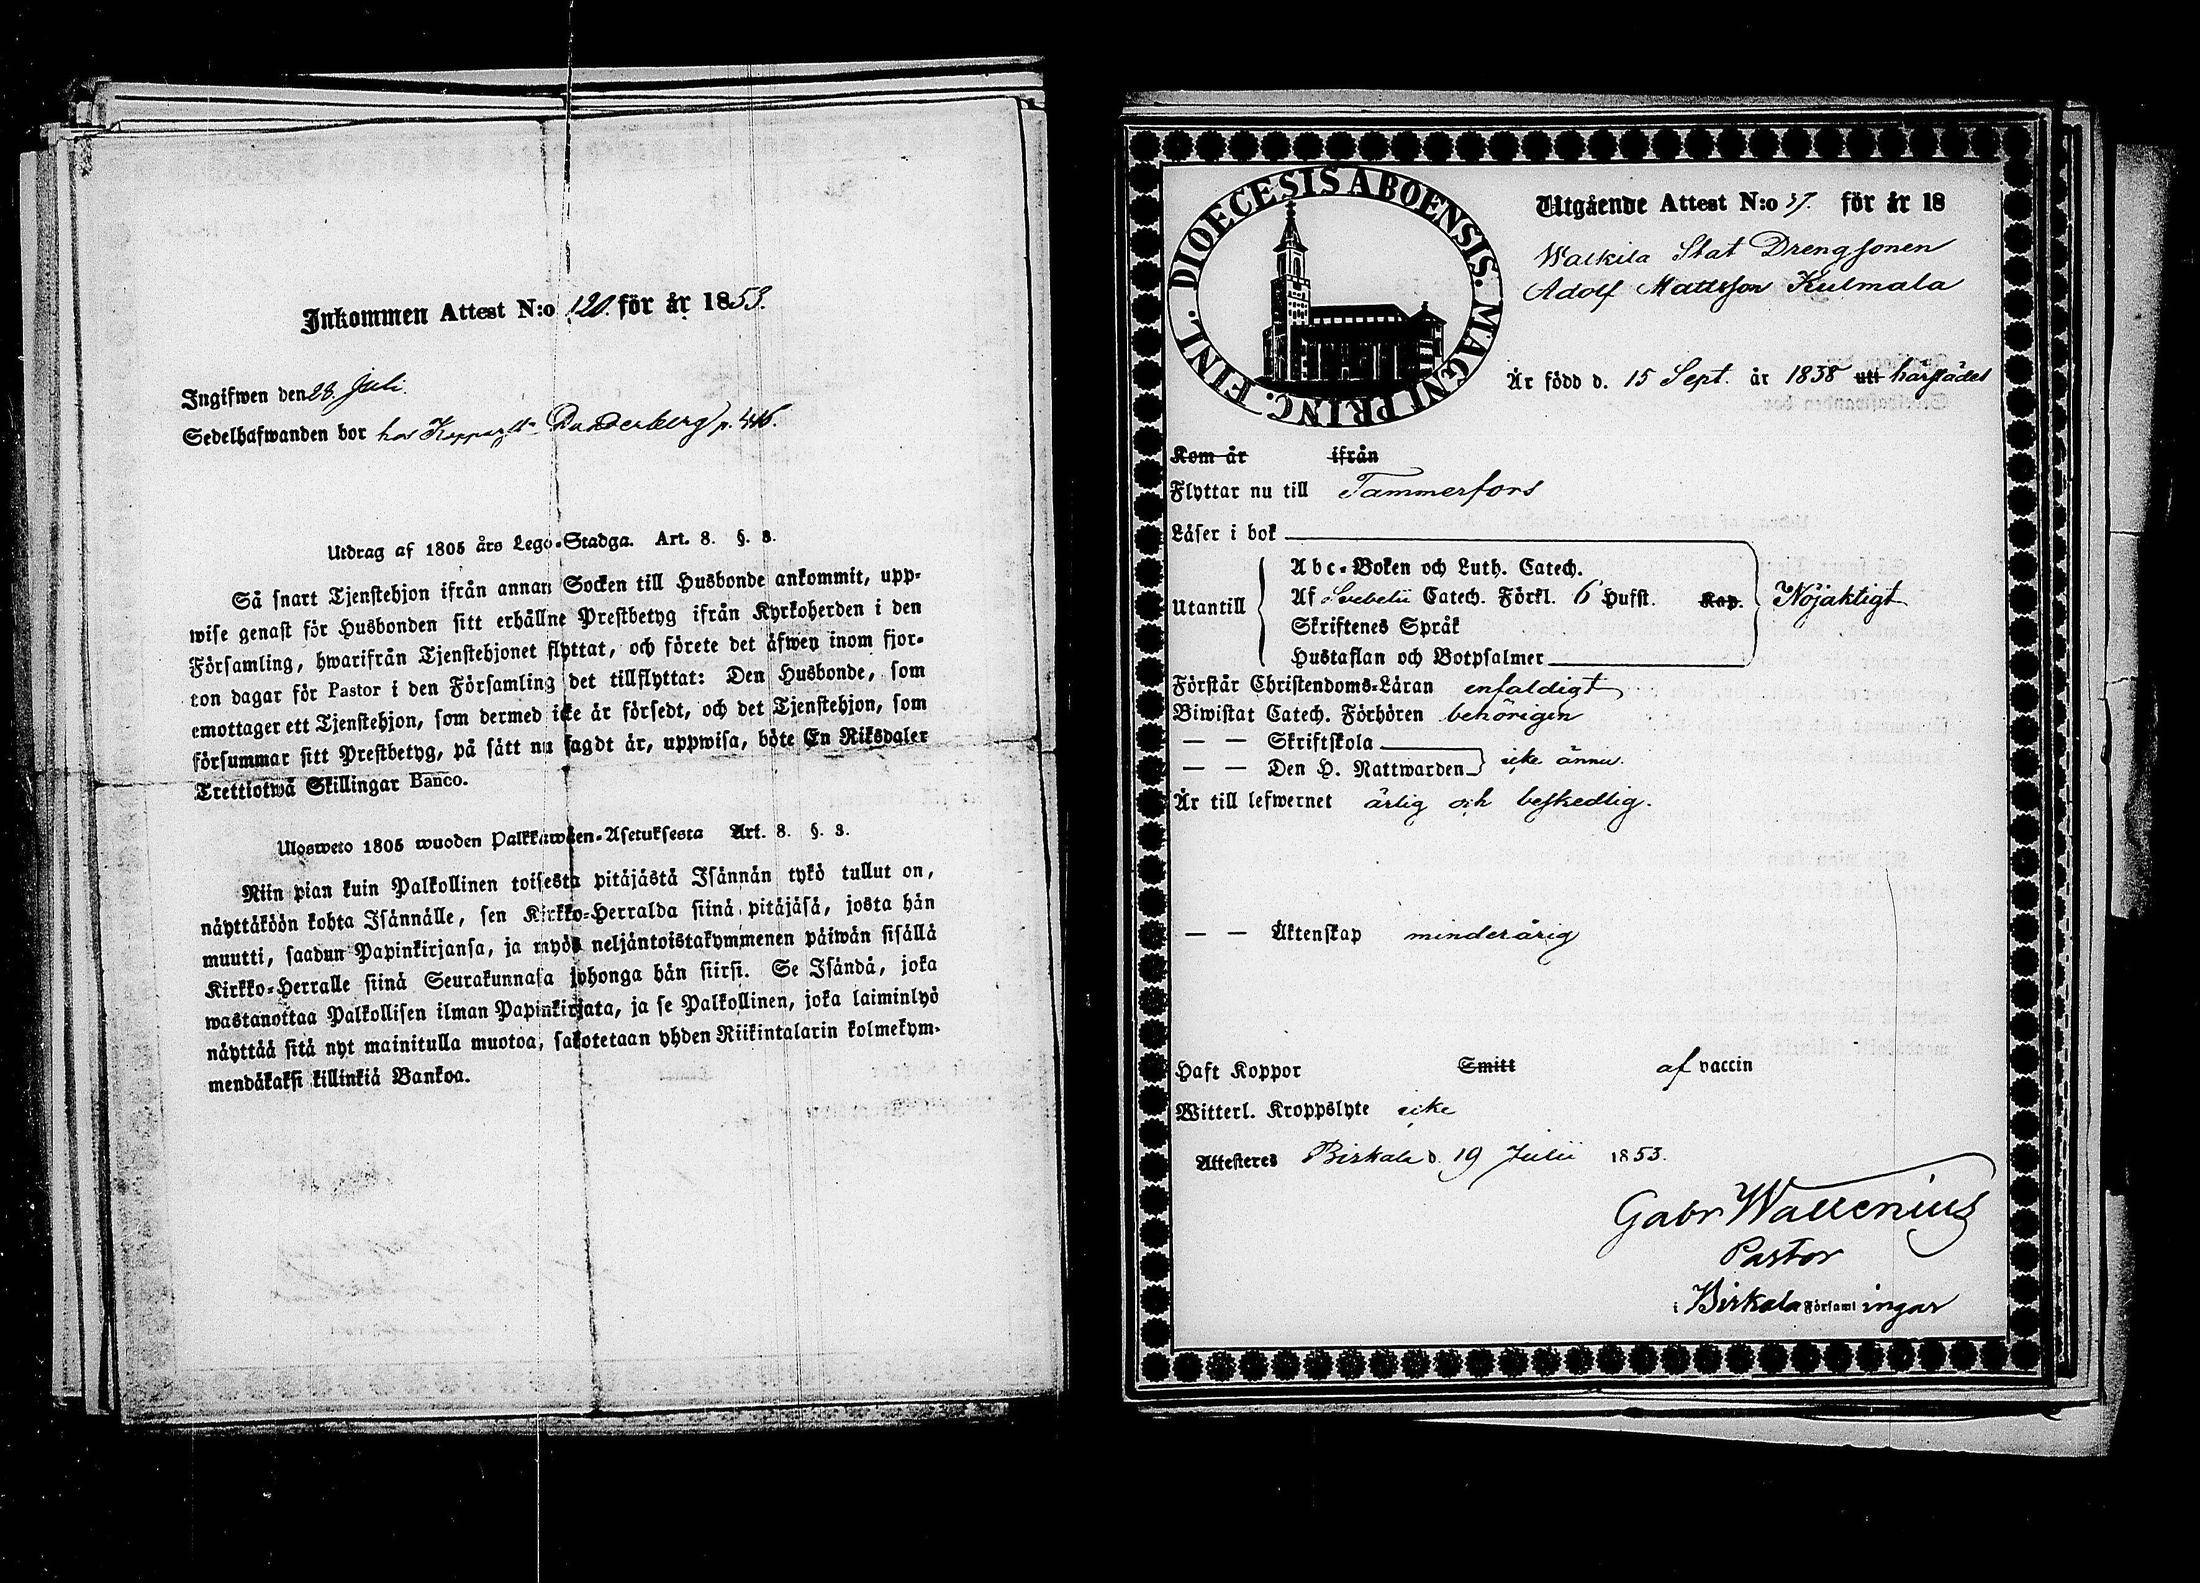 Inkommen Attest N:o 120. för år 1853.
Ingifwen den 28. Juli.
Sedelhafwanden bor hos Kopparsl. Dunderberg p. 446.
Utdrag af 1805 års Lego-Stadga. Art. 8. §. 3.
Så snart Tjenstehjon ifrån annan Socken till Husbonde ankommit, upp-
wise genast för Husbonden sitt erhållne Prestbetyg ifrån Kyrkoherden i den
Församling, hwarifrån Tjenstehjonet flyttat, och förete det äfwen inom fjor-
ton dagar för Pastor i den Församling det tillflyttat: Den Husbonde, som
emottager ett Tjenstehjon, som dermed icke är försedt, och det Tjenstehjon, som
försummar sitt Prestbetyg, på sätt nu sagdt är, uppwisa, böte En Riksdaler
Trettiotwå Skillingar Banco.
Ulosweto 1805 wuoden Palkkawäen-Asetuksesta Art. 8. §. 3.
Niin pian kuin Palkollinen toisesta pitäjästä Isännän tykö tullut on,
näyttäköön kohta Isännälle, sen Kirkko-Herralda siinä pitäjäsä, josta hän
muutti, saadun Papinkirjansa, ja myös neljäntoistakymmenen päiwän sisällä
Kirkko-Herralle siinä Seurakunnasa johonga hän siirsi. Se Isändä, joka
wastanottaa Palkollisen ilman Papinkirjata, ja se Palkollinen, joka laiminlyö
näyttää sitä nyt mainitulla muotoa, sakotetaan yhden Riikintalarin kolmekym-
mendäkaksi killinkiä Bankoa.
DIOECESIS ABOENSIS. MAGNI PRINC. FINL.
Utgående Attest N:o 37. för år 18
Walkila Stat Drengsonen
Adolf Mattsson Kulmala
Är född d. 15 Sept. år 1838 uti härstädes
Kom år ifrån
Flyttar nu till Tammerfors
Läser i bok
Abc-Boken och Luth. Catech.
Utantill Af Svebelii Catech. Förkl. 6 Hufst. Kap. Nöjaktigt
Skriftenes Språk
Hustaflan och Botpsalmer
Förstår Christendoms-Läran enfaldigt
Biwistat Catech. Förhören behörigen
— — Skriftskola
— — Den H. Nattwarden icke ännu.
Är till lefwernet ärlig och beskedlig.
— — Äktenskap minderårig
Haft Koppor Smitt af vaccin
Witterl. Kroppslyte icke
Attesteres Birkala d. 19 Julii 1853.
Gabr Wallenius
Pastor
i Birkala Församlingar